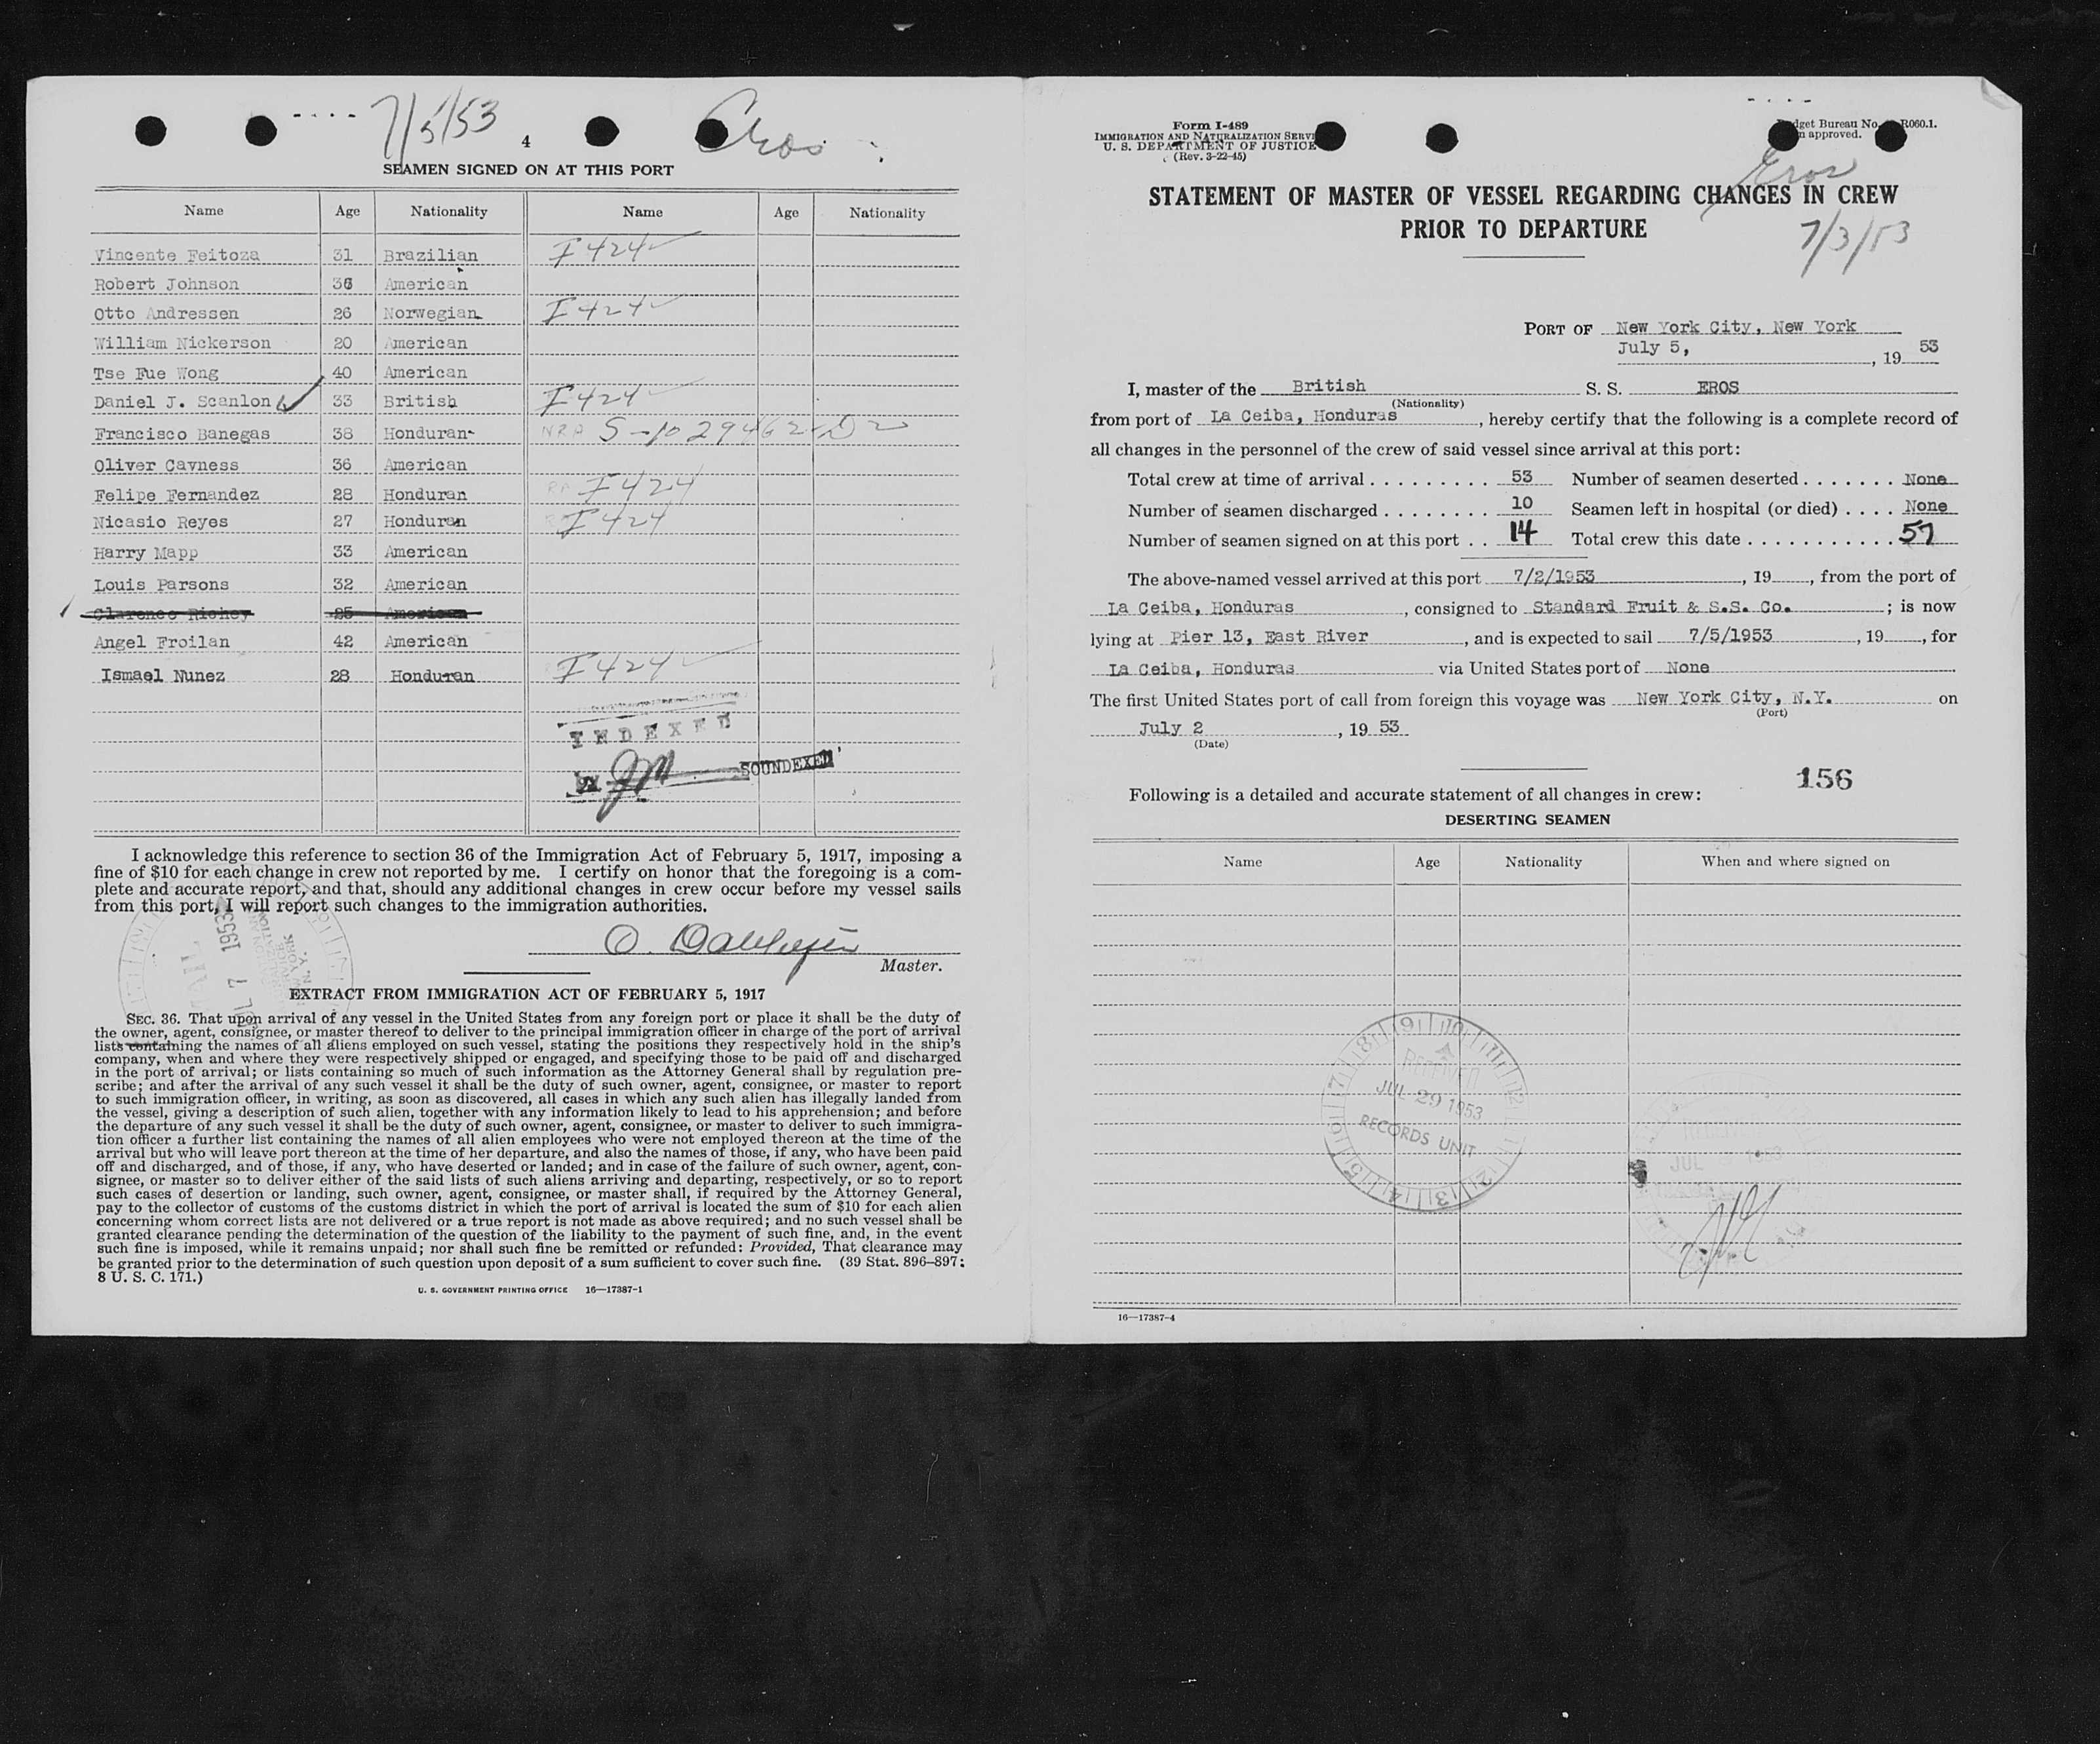 7/5/53
4
Eros
SEAMEN SIGNED ON AT THIS PORT
Name Age Nationality Name Age Nationality
Vincente Feitoza 31 Brazilian I 424
Robert Johnson 36 American
Otto Andressen 26 Norwegian I 424
William Nickerson 20 American
Tse Fue Wong 40 American
Daniel J. Scanlon 33 British I 424
Francisco Banegas 38 Honduran NRA S-1029462-D2
Oliver Cavness 36 American
Felipe Fernandez 28 Honduran I 424
Nicasio Reyes 27 Honduran I 424
Harry Mapp 33 American
Louis Parsons 32 American
Clarence Richey 25 American
Angel Froilan 42 American
Ismael Nunez 28 Honduran I 424
INDEXED
SOUNDEXED
I acknowledge this reference to section 36 of the Immigration Act of February 5, 1917, imposing a
fine of $10 for each change in crew not reported by me. I certify on honor that the foregoing is a com-
plete and accurate report, and that, should any additional changes in crew occur before my vessel sails
from this port, I will report such changes to the immigration authorities.
Master.
EXTRACT FROM IMMIGRATION ACT OF FEBRUARY 5, 1917
SEC. 36. That upon arrival of any vessel in the United States from any foreign port or place it shall be the duty of
the owner, agent, consignee, or master thereof to deliver to the principal immigration officer in charge of the port of arrival
lists containing the names of all aliens employed on such vessel, stating the positions they respectively hold in the ship's
company, when and where they were respectively shipped or engaged, and specifying those to be paid off and discharged
in the port of arrival; or lists containing so much of such information as the Attorney General shall by regulation pre-
scribe; and after the arrival of any such vessel it shall be the duty of such owner, agent, consignee, or master to report
to such immigration officer, in writing, as soon as discovered, all cases in which any such alien has illegally landed from
the vessel, giving a description of such alien, together with any information likely to lead to his apprehension; and before
the departure of any such vessel it shall be the duty of such owner, agent, consignee, or master to deliver to such immigra-
tion officer a further list containing the names of all alien employees who were not employed thereon at the time of the
arrival but who will leave port thereon at the time of her departure, and also the names of those, if any, who have been paid
off and discharged, and of those, if any, who have deserted or landed; and in case of the failure of such owner, agent, con-
signee, or master so to deliver either of the said lists of such aliens arriving and departing, respectively, or so to report
such cases of desertion or landing, such owner, agent, consignee, or master shall, if required by the Attorney General,
pay to the collector of customs of the customs district in which the port of arrival is located the sum of $10 for each alien
concerning whom correct lists are not delivered or a true report is not made as above required; and no such vessel shall be
granted clearance pending the determination of the question of the liability to the payment of such fine, and, in the event
such fine is imposed, while it remains unpaid; nor shall such fine be remitted or refunded: Provided, That clearance may
be granted prior to the determination of such question upon deposit of a sum sufficient to cover such fine. (39 Stat. 896-897;
8 U. S. C. 171.)
U. S. GOVERNMENT PRINTING OFFICE 16—17387-1
Form I-489
IMMIGRATION AND NATURALIZATION SERVI
U. S. DEPARTMENT OF JUSTICE
(Rev. 3-22-45)
get Bureau No. R060.1.
approved.
Eros
STATEMENT OF MASTER OF VESSEL REGARDING CHANGES IN CREW
PRIOR TO DEPARTURE
7/3/53
PORT OF New York City, New York
July 5, , 19 53
I, master of the British S. S. EROS
(Nationality)
from port of La Ceiba, Honduras , hereby certify that the following is a complete record of
all changes in the personnel of the crew of said vessel since arrival at this port:
Total crew at time of arrival . . . . . . . . . 53 Number of seamen deserted . . . . . . . None
Number of seamen discharged . . . . . . . . 10 Seamen left in hospital (or died) . . . . None
Number of seamen signed on at this port . . 14 Total crew this date . . . . . . . . . . . . 57
The above-named vessel arrived at this port 7/2/1953 , 19 , from the port of
La Ceiba, Honduras , consigned to Standard Fruit & S.S. Co. ; is now
lying at Pier 13, East River , and is expected to sail 7/5/1953 , 19 , for
La Ceiba, Honduras via United States port of None
The first United States port of call from foreign this voyage was New York City, N.Y. on
(Port)
July 2 , 19 53
(Date)
156
Following is a detailed and accurate statement of all changes in crew:
DESERTING SEAMEN
Name Age Nationality When and where signed on
RECEIVED
JUL 29 1953
RECORDS UNIT
16—17387-4